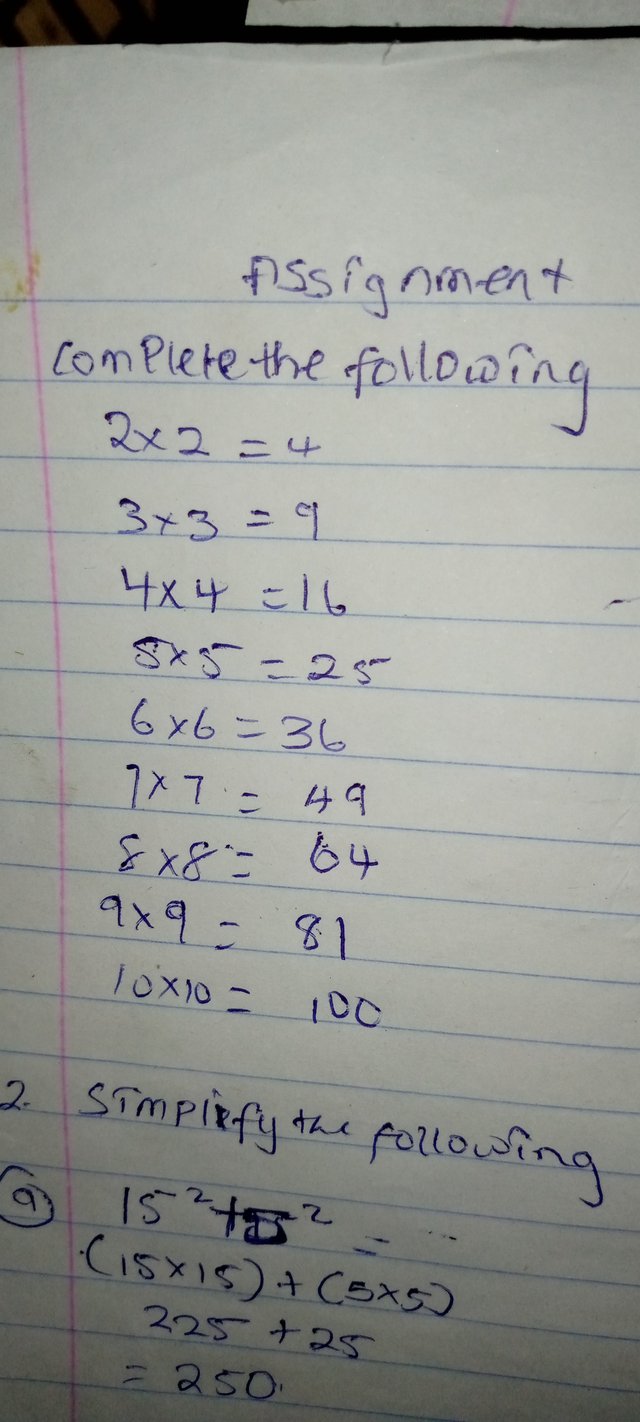 Assignment
Complete the following
2×2 = 4
3×3 = 9
4×4 = 16
5×5 = 25
6×6 = 36
7×7 = 49
8×8 = 64
9×9 = 81
10×10 = 100
2. Simplify the following
(a) 15² + 5² = ...
(15×15) + (5×5)
225 + 25
= 250.